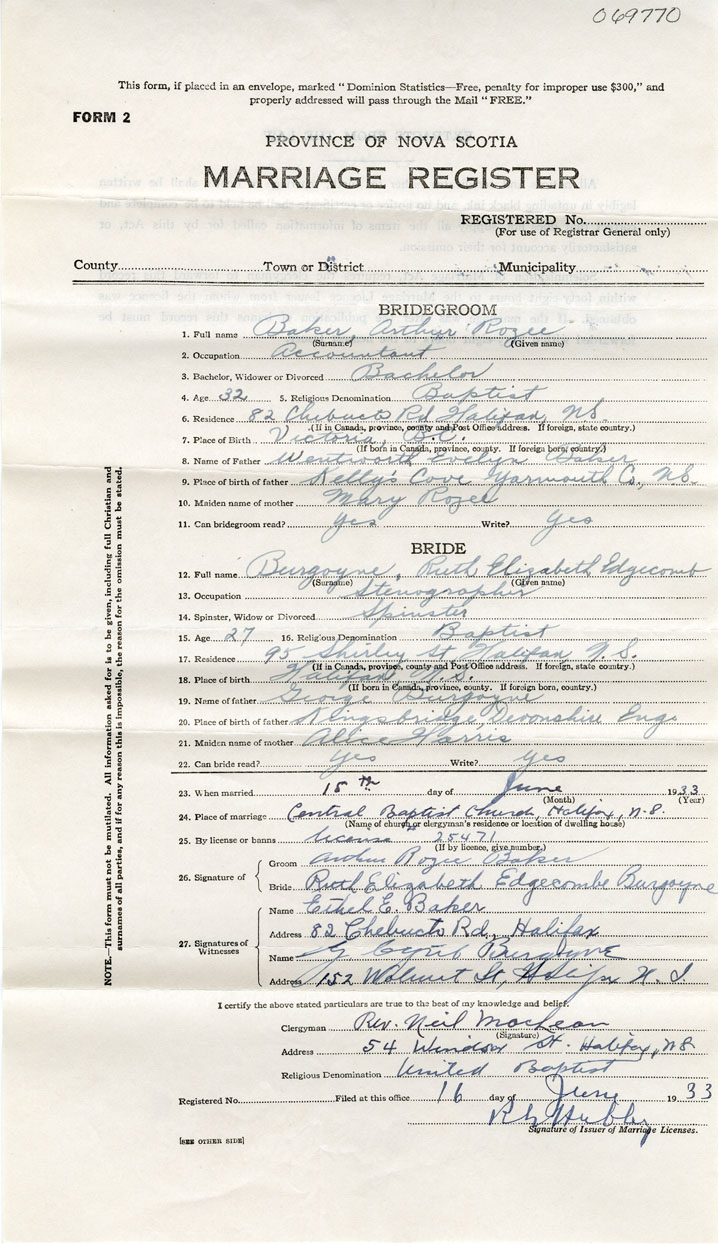 069770
This form, if placed in an envelope, marked "Dominion Statistics—Free, penalty for improper use $300," and
properly addressed will pass through the Mail "FREE."
FORM 2
PROVINCE OF NOVA SCOTIA
MARRIAGE REGISTER
REGISTERED No.
(For use of Registrar General only)
County Town or District Municipality
BRIDEGROOM
1. Full name Baker, Arthur Rozee
(Surname) (Given name)
2. Occupation Accountant
3. Bachelor, Widower or Divorced Bachelor
4. Age 32 5. Religious Denomination Baptist
6. Residence 82 Chebucto Rd Halifax, N.S.
(If in Canada, province, county and Post Office address. If foreign, state country.)
7. Place of Birth Victoria, B.C.
(If born in Canada, province, county. If foreign born, country.)
8. Name of Father Wentworth Evelyn Baker
9. Place of birth of father Kelly's Cove Yarmouth Co., N.S.
10. Maiden name of mother Mary Rozee
11. Can bridegroom read? Yes Write? Yes
BRIDE
12. Full name Burgoyne, Ruth Elizabeth Edgecomb
(Surname) (Given name)
13. Occupation Stenographer
14. Spinster, Widow or Divorced Spinster
15. Age 27 16. Religious Denomination Baptist
17. Residence 95 Shirley St Halifax N.S.
(If in Canada, province, county and Post Office address. If foreign, state country.)
18. Place of birth Halifax N.S.
(If born in Canada, province, county. If foreign born, country.)
19. Name of father George Burgoyne
20. Place of birth of father Kingsbridge, Devonshire Eng
21. Maiden name of mother Alice Harris
22. Can bride read? Yes Write? Yes
23. When married 15th day of June 1933
(Month) (Year)
24. Place of marriage Central Baptist Church, Halifax, N.S.
(Name of church or clergyman's residence or location of dwelling house)
25. By license or banns license 25471
(If by licence, give number.)
26. Signature of
Groom Arthur Rozee Baker
Bride Ruth Elizabeth Edgecombe Burgoyne
27. Signatures of Witnesses
Name Ethel E. Baker
Address 82 Chebucto Rd, Halifax
Name G Burgoyne
Address 152 Walnut St, Halifax N.S
I certify the above stated particulars are true to the best of my knowledge and belief.
Clergyman Rev. Neil MacLean
(Signature)
Address 54 Windsor St. Halifax, N.S.
Religious Denomination United Baptist
Registered No. Filed at this office 16 day of June 1933
Signature of Issuer of Marriage Licenses.
[SEE OTHER SIDE]
NOTE.—This form must not be mutilated. All information asked for is to be given, including full Christian and
surnames of all parties, and if for any reason this is impossible, the reason for the omission must be stated.